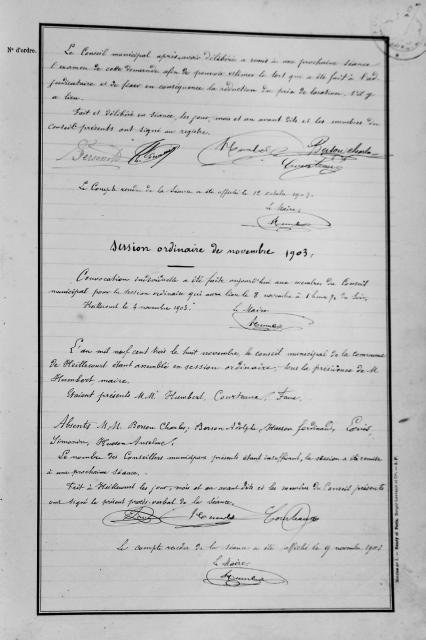 N° d'ordre.
Le Conseil municipal après avoir délibéré a remis à une prochaine séance
l'examen de cette demande afin de pouvoir estimer le tort qui a été fait à l'ad-
judicataire et de fixer en conséquence la réduction du prix de location, s'il y
a lieu.
Fait et délibéré en séance, les jour, mois et an avant dits et les membres du
Conseil présents ont signé au registre.
Humbert Berson Charles
Courteaux
Le Compte rendu de la séance a été affiché le 12 octobre 1903.
Le Maire,
Humbert
Session ordinaire de novembre 1903.
Convocation individuelle a été faite aujourd'hui aux membres du Conseil
municipal pour la session ordinaire qui aura lieu le 8 novembre à 1 heure du soir.
Heillecourt le 4 novembre 1903.
Le Maire
Humbert
L'an mil neuf cent trois le huit novembre, le conseil municipal de la commune
de Heillecourt étant assemblé en session ordinaire, sous la présidence de M
Humbert, maire.
Étaient présents M.M. Humbert, Courteaux, Faur
Absents M.M. Berson Charles, Berson Adolphe, Husson Ferdinand, Louis,
Simonin, Husson Anselme.
Le nombre des Conseillers municipaux présents étant insuffisant, la session a été remise
à une prochaine séance.
Fait à Heillecourt les jour, mois et an avant dits et les membres du Conseil présents
ont signé le présent procès-verbal de la séance.
Humbert Courteaux
Le compte rendu de la séance a été affiché le 9 novembre 1903
Le Maire,
Humbert